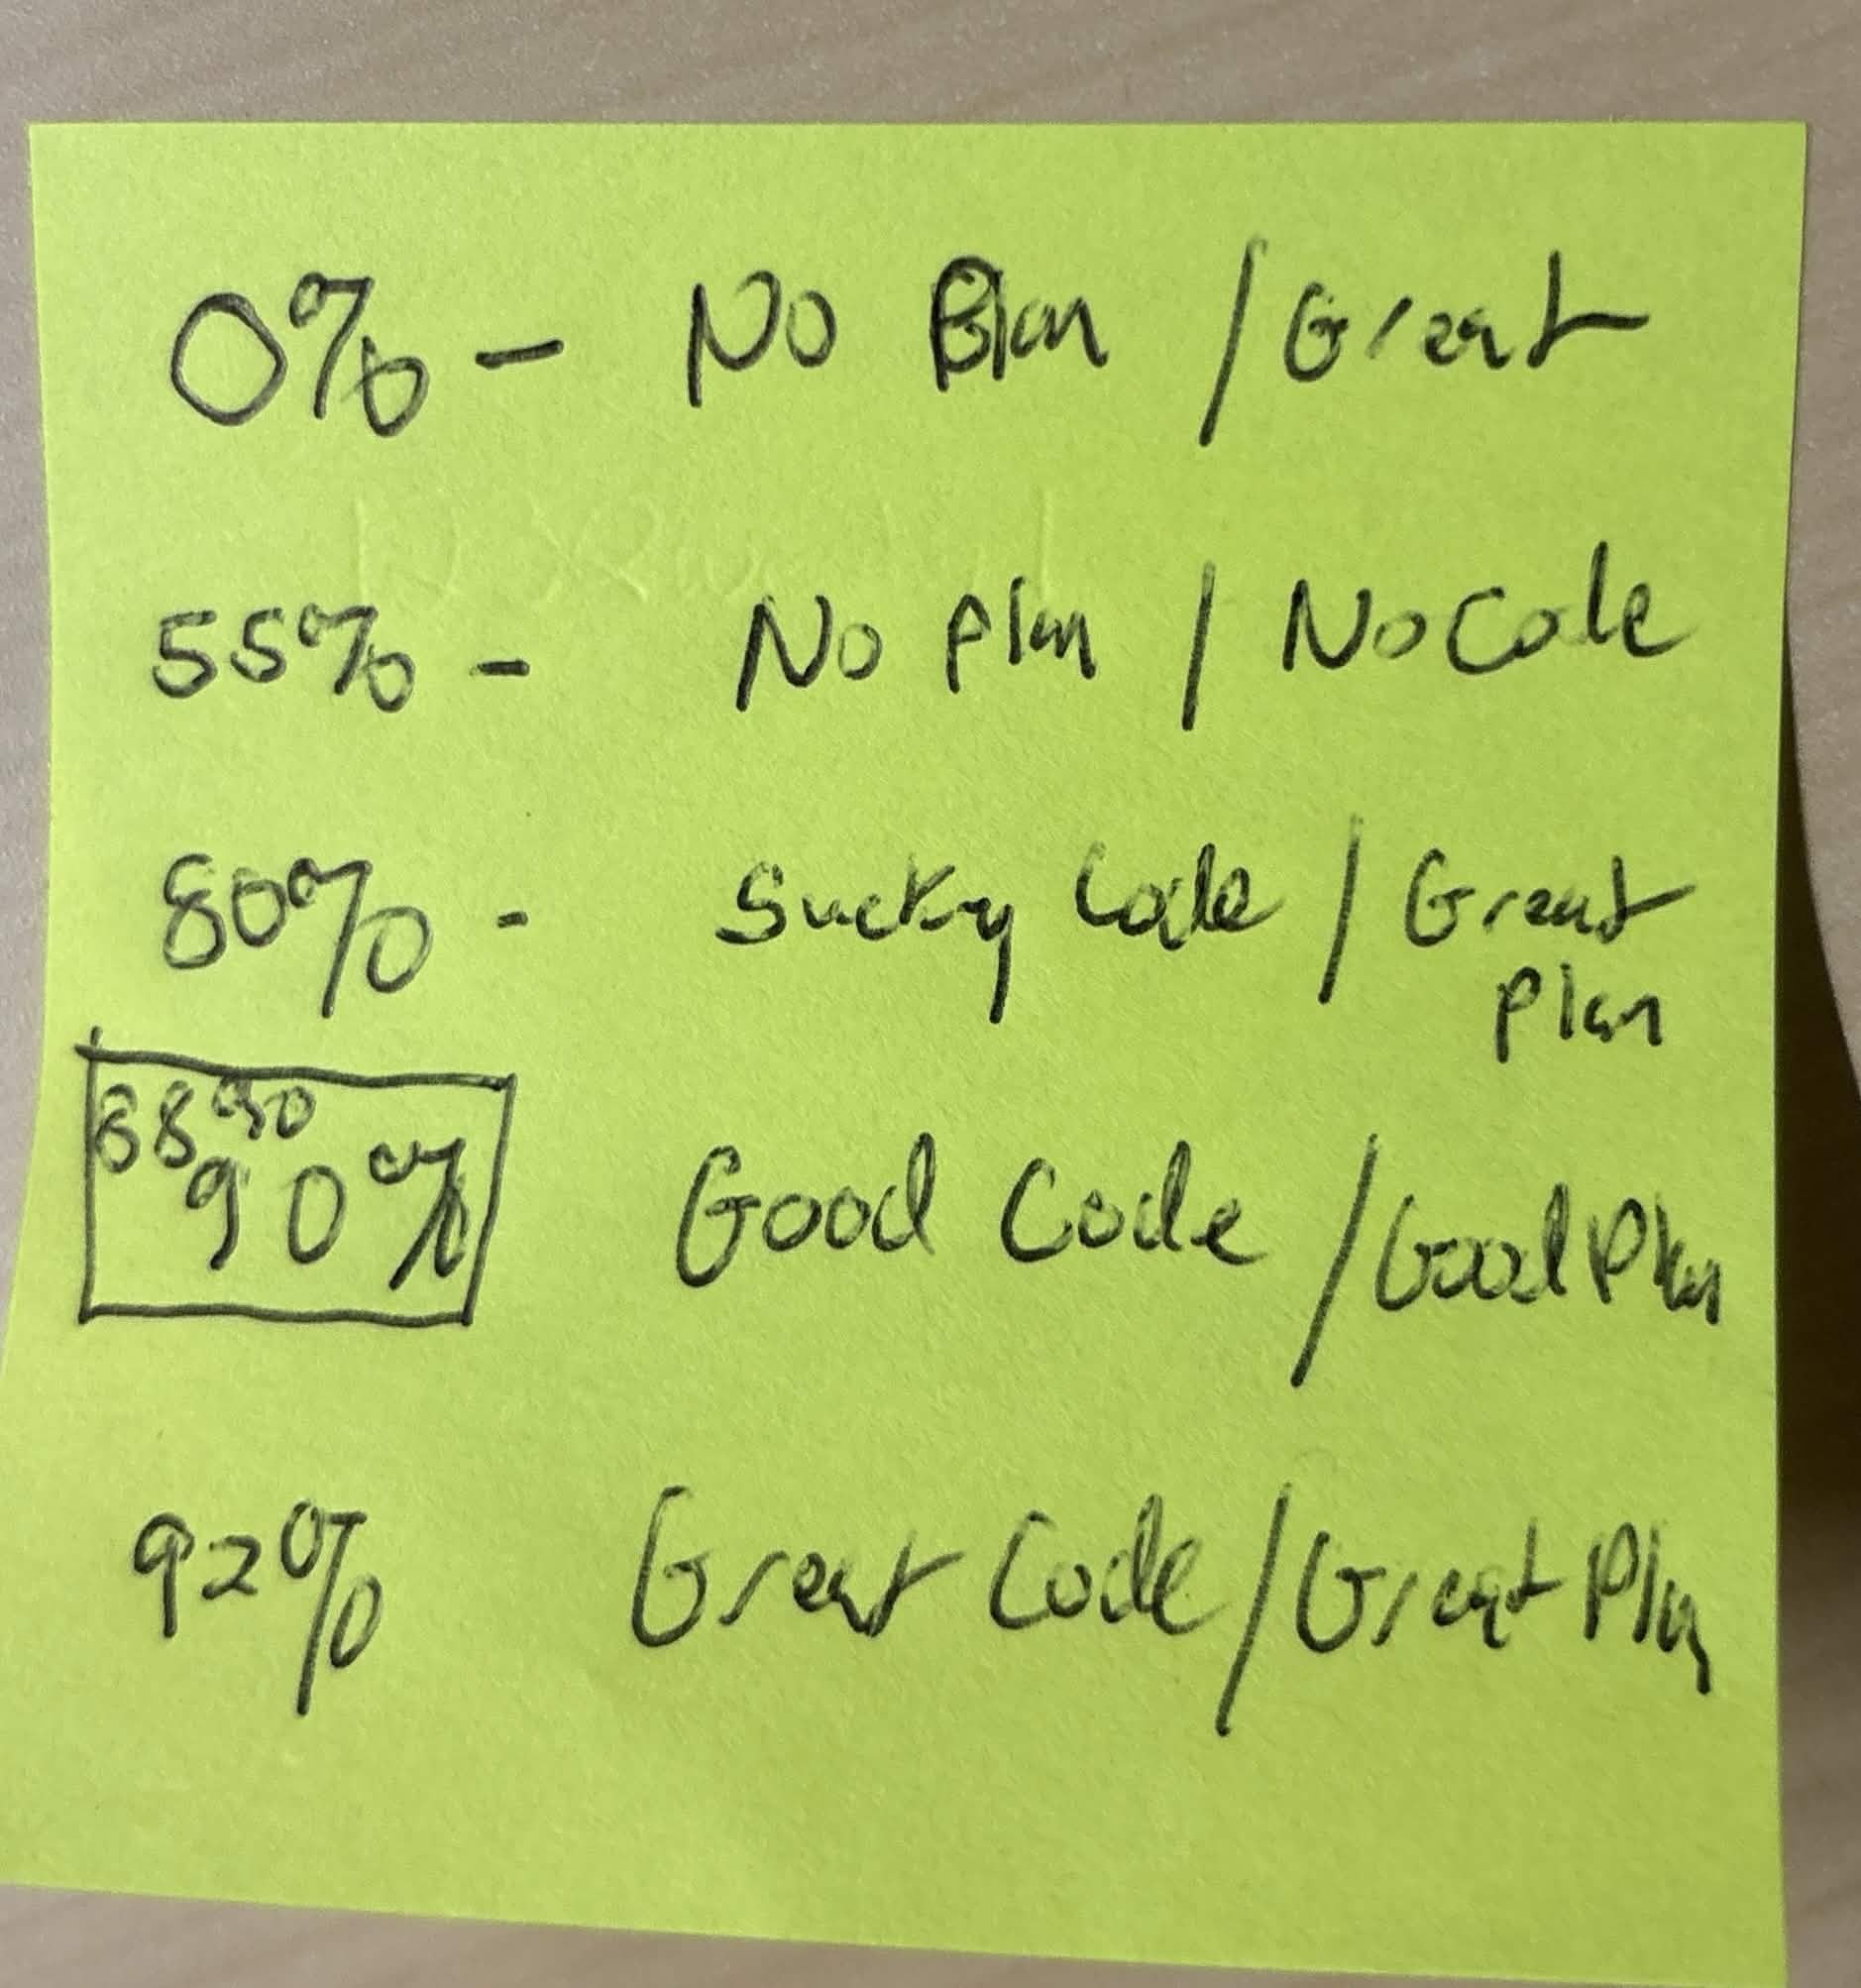 0% - No Plan / Great
55% - No Plan / No Code
80% - Sucky Code / Great
Plan
88 90
90% Good Code / Good Plan
92% Great Code / Great Plan